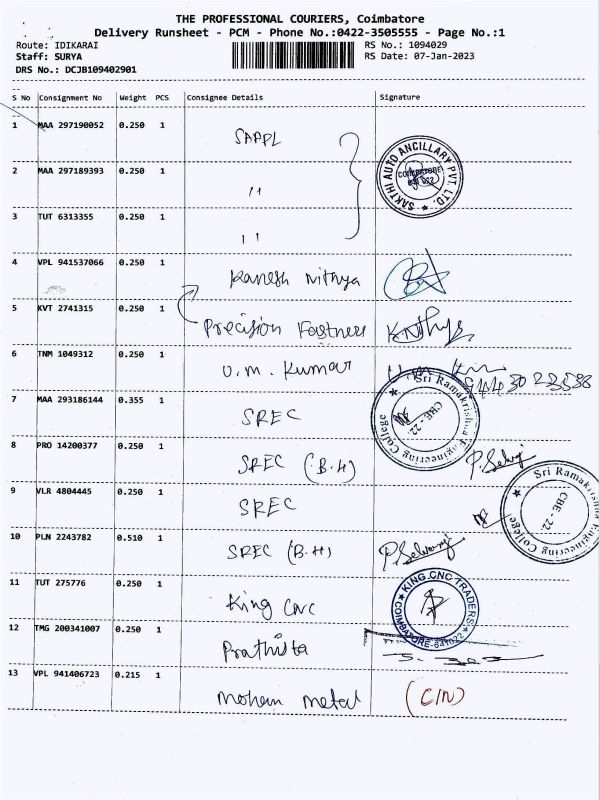 THE PROFESSIONAL COURIERS, Coimbatore
Delivery Runsheet - PCM - Phone No.:0422-3505555 - Page No.:1
Route: IDIKARAI RS No.: 1094029
Staff: SURYA RS Date: 07-Jan-2023
DRS No.: DCJB109402901
S No Consignment No Weight PCS Consignee Details Signature
1 MAA 297190052 0.250 1 SAAPL
SAKTHI AUTO ANCILLARY PVT. LTD. COIMBATORE 641 022
2 MAA 297189393 0.250 1 ''
3 TUT 6313355 0.250 1 ''
4 VPL 941537066 0.250 1 Kanesh Nithya
5 KVT 2741315 0.250 1 Precision Fastners K.Nithya
6 TNM 1049312 0.250 1 U.M. Kumar
7 MAA 293186144 0.355 1 SREC
Sri Ramakrishna Engineering College CBE - 22
8 PRO 14200377 0.250 1 SREC (B.H) P.Selvi
9 VLR 4804445 0.250 1 SREC
Sri Ramakrishna Engineering College CBE - 22
10 PLN 2243782 0.510 1 SREC (B.H)
11 TUT 275776 0.250 1 King CNC
KING CNC TRADERS COIMBATORE-641022
12 TMG 200341007 0.250 1 Prathista
13 VPL 941406723 0.215 1 Mohan Metal (CIN)